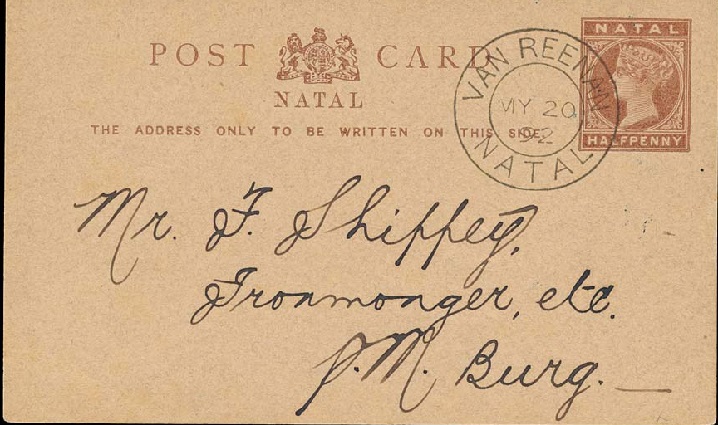 POST CARD
NATAL
THE ADDRESS ONLY TO BE WRITTEN ON THIS SIDE.
VAN REENEN
MY 20
92
NATAL
NATAL
HALFPENNY
Mr. F. Shippey,
Ironmonger, etc.
P. M. Burg.